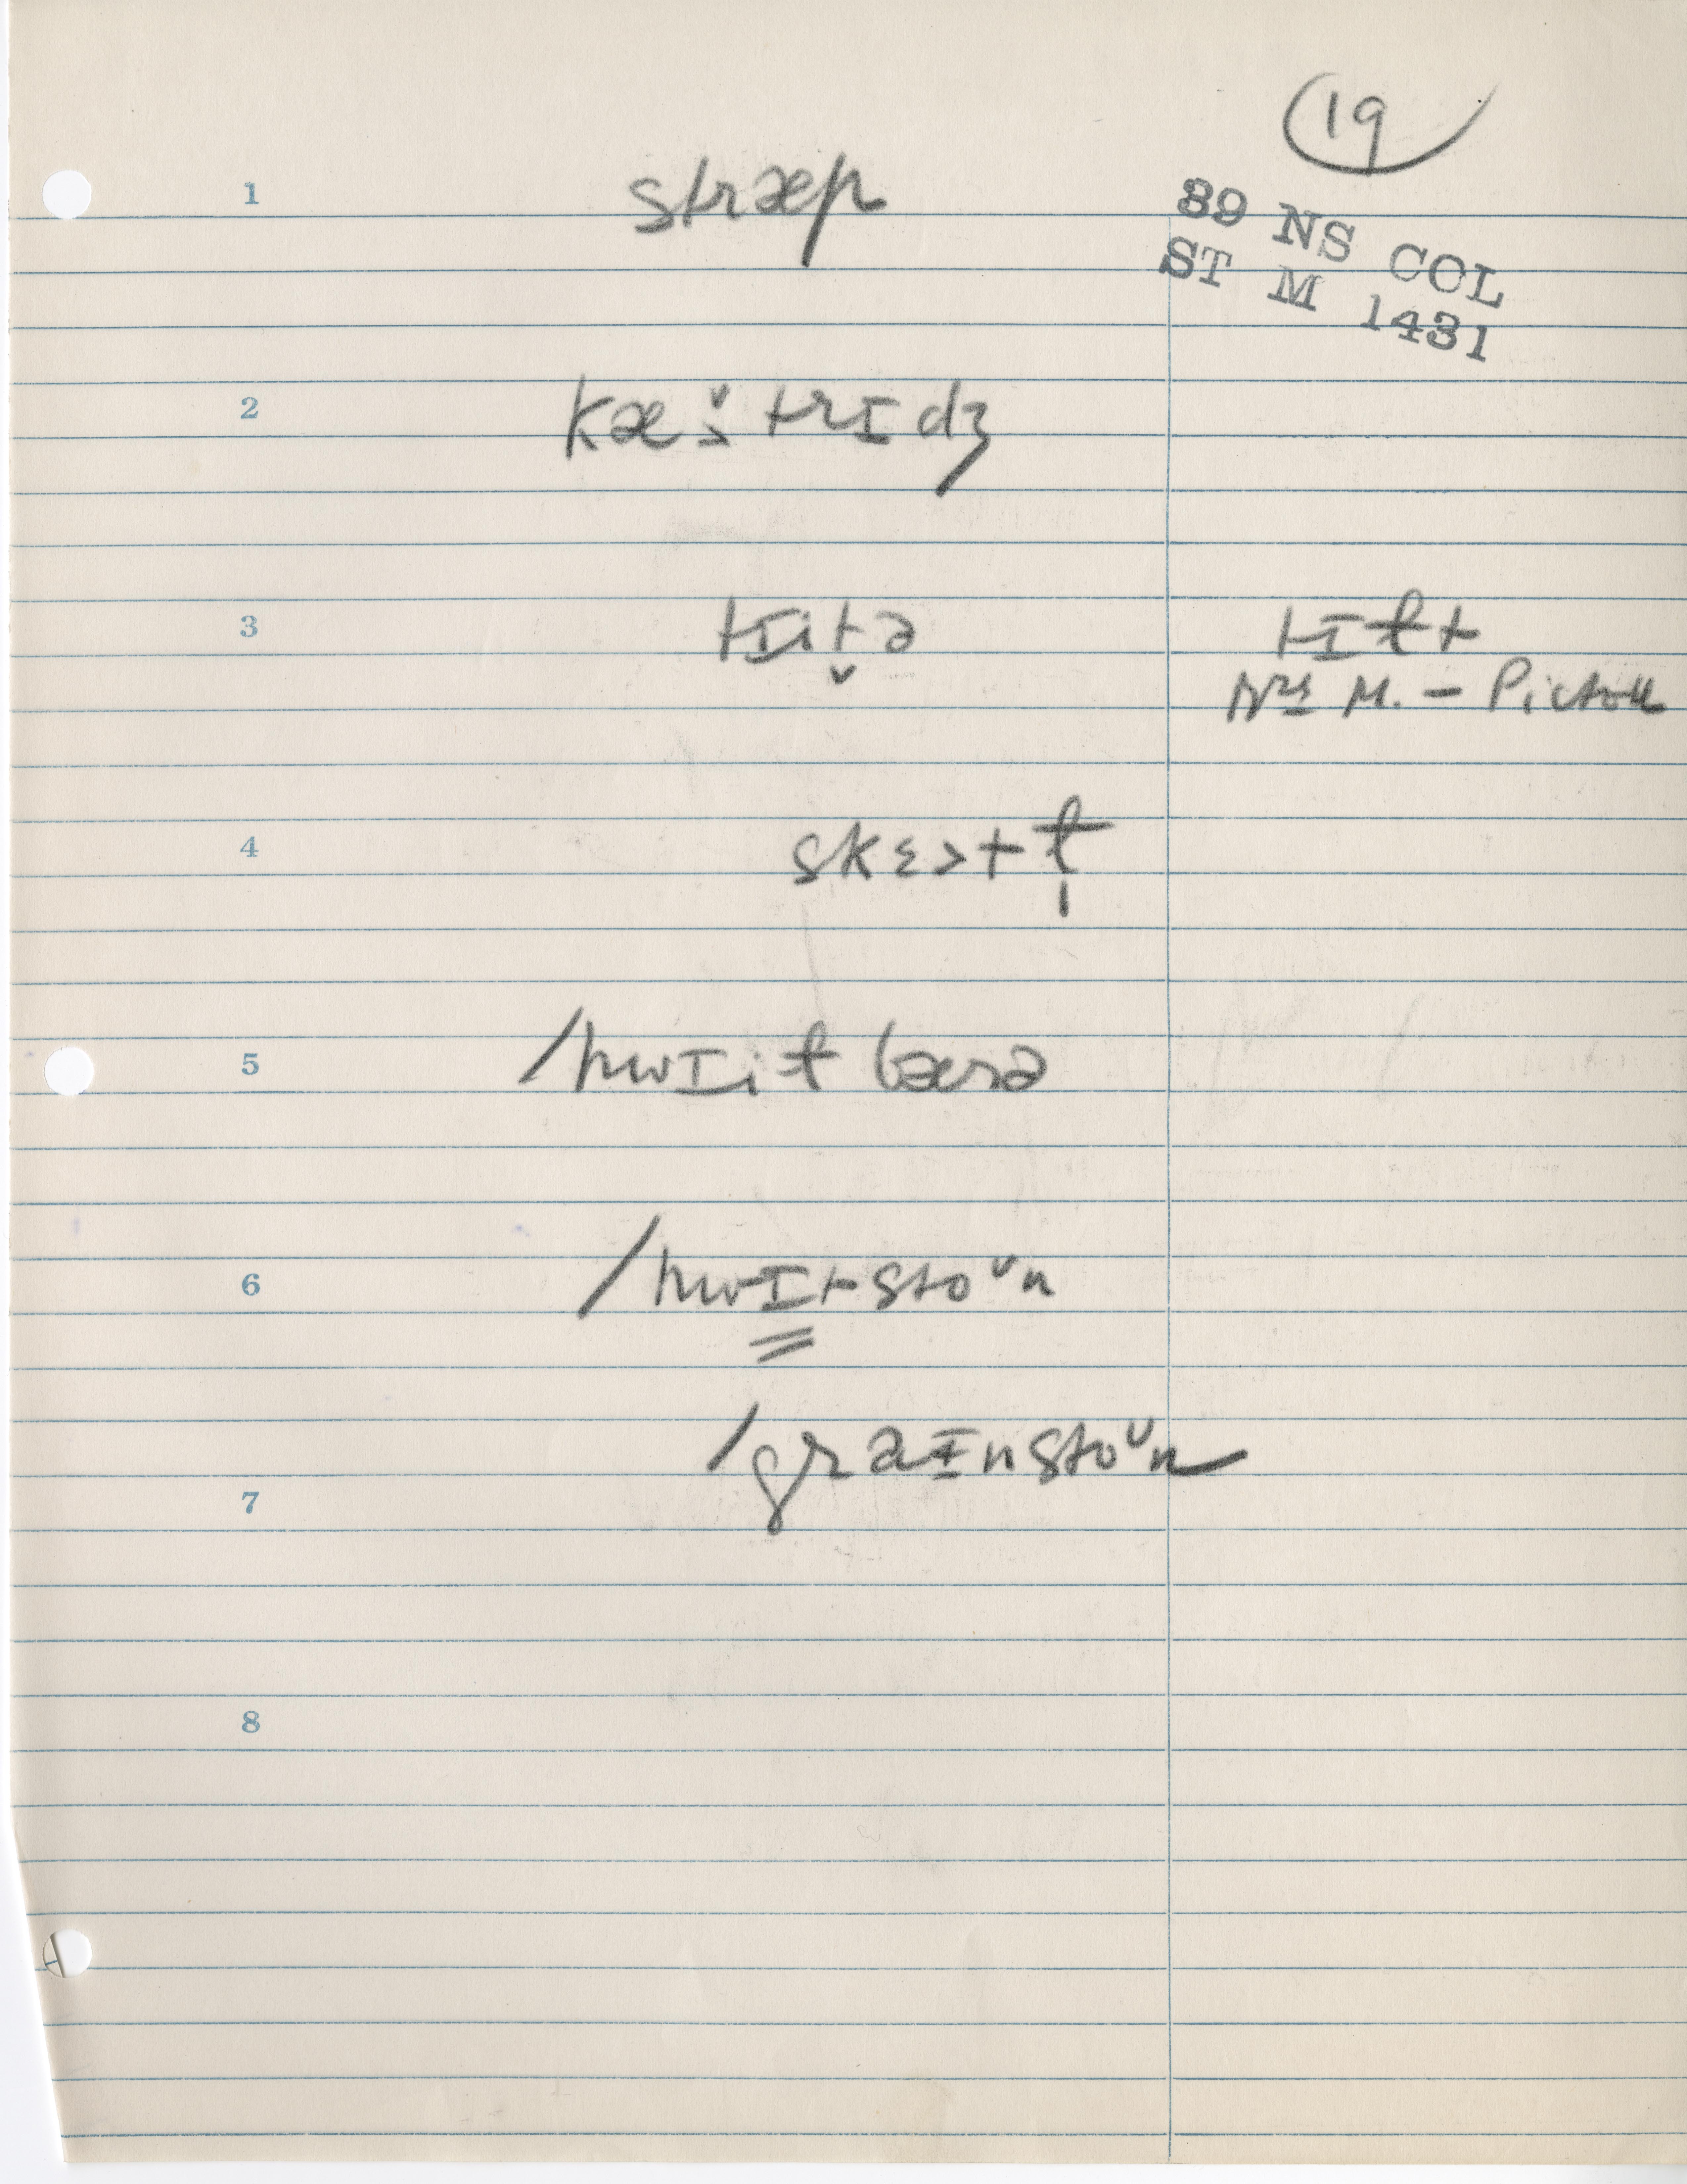 19
39 NS COL
ST M 1431
1 stræp
2 kætrɪdʒ
3 tɪit̬ə tɪɫt
Mrs M. – Pictou
4 skɛɚtɫ̩
5 /hwɪiɫ bærə
6 /hwɪtstoᵁn
/graɪnstoᵁn
7
8